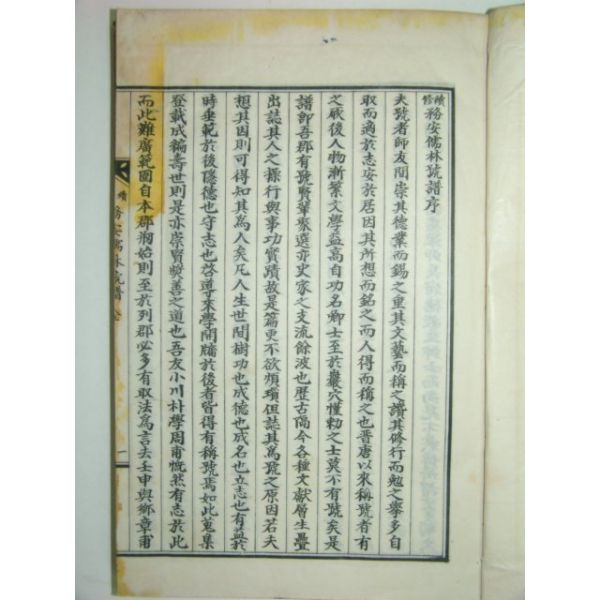 續修務安儒林號譜序
夫號者師友間崇其德業而錫之重其文藝而稱之讚其修行而勉之擧多自
取而適於志安於居因其所想而銘之而人得而稱之也晋唐以來稱號者有
之厥後人物漸繁文學益高自功名卿士至於巖穴慬勅之士莫不有號矣是
譜卽吾郡有號賢輩聚選亦史家之支流餘波也歷古隔今各種文獻層生疊
出誌其人之操行與事功實蹟故是篇更不欲煩瓆但誌其爲號之原因若夫
想其因則可得知其爲人矣凡人生世間樹功也成德也成名也立志也有益於
時垂範於後隱德也守志也啓導來學開牖於後者皆得有稱號焉如此蒐集
登載成編壽世則是亦崇賢奬善之道也吾友小川朴學周甫慨然有志於此
而此難廣範圍自本郡捌始則至於列郡必多有取法爲言去壬申與鄉章甫
續務安儒林號譜全
一